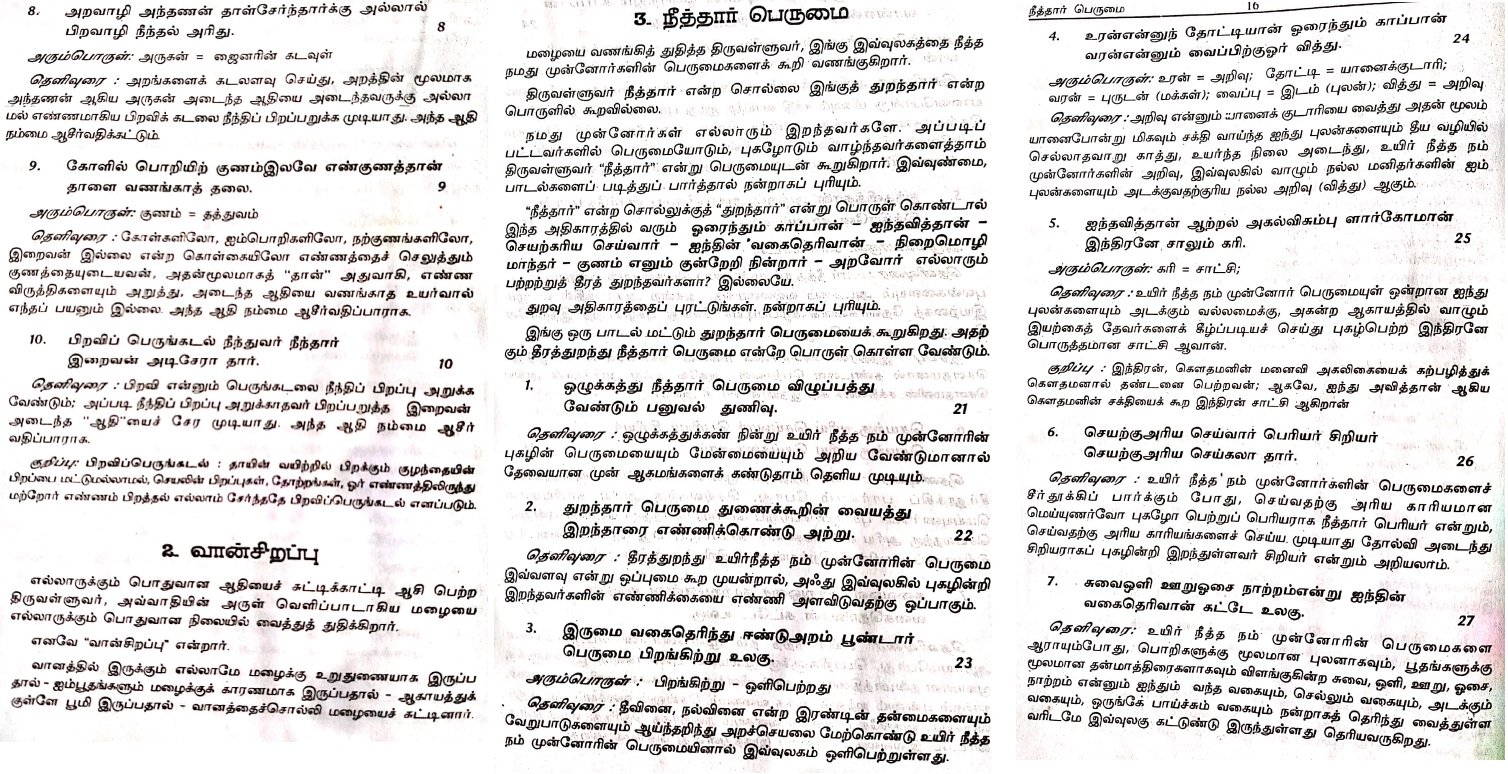 8. அறவாழி அந்தணன் தாள்சேர்ந்தார்க்கு அல்லால்
பிறவாழி நீந்தல் அரிது. 8
அரும்பொருள்: அருகன் = ஜைனரின் கடவுள்
தெளிவுரை : அறங்களைக் கடலளவு செய்து, அறத்தின் மூலமாக
அந்தணன் ஆகிய அருகன் அடைந்த ஆதியை அடைந்தவருக்கு அல்லா
மல் எண்ணமாகிய பிறவிக் கடலை நீந்திப் பிறப்பறுக்க முடியாது. அந்த ஆதி
நம்மை ஆசிர்வதிக்கட்டும்.
9. கோளில் பொறியிற் குணம்இலவே எண்குணத்தான்
தாளை வணங்காத் தலை. 9
அரும்பொருள்: குணம் = தத்துவம்
தெளிவுரை : கோள்களிலோ, ஐம்பொறிகளிலோ, நற்குணங்களிலோ,
இறைவன் இல்லை என்ற கொள்கையிலோ எண்ணத்தைச் செலுத்தும்
குணத்தையுடையவன், அதன்மூலமாகத் "தான்" அதுவாகி, எண்ண
விருத்திகளையும் அறுத்து, அடைந்த ஆதியை வணங்காத உயர்வால்
எந்தப் பயனும் இல்லை. அந்த ஆதி நம்மை ஆசீர்வதிப்பாராக.
10. பிறவிப் பெருங்கடல் நீந்துவர் நீந்தார்
இறைவன் அடிசேரா தார். 10
தெளிவுரை : பிறவி என்னும் பெருங்கடலை நீந்திப் பிறப்பு அறுக்க
வேண்டும்; அப்படி நீந்திப் பிறப்பு அறுக்காதவர் பிறப்பறுத்த இறைவன்
அடைந்த "ஆதி"யைச் சேர முடியாது. அந்த ஆதி நம்மை ஆசீர்
வதிப்பாராக.
குறிப்பு: பிறவிப்பெருங்கடல் : தாயின் வயிற்றில் பிறக்கும் குழந்தையின்
பிறப்பை மட்டுமல்லாமல், செயலின் பிறப்புகள், தோற்றங்கள், ஓர் எண்ணத்திலிருந்து
மற்றோர் எண்ணம் பிறத்தல் எல்லாம் சேர்ந்ததே பிறவிப்பெருங்கடல் எனப்படும்.
2. வான்சிறப்பு
எல்லாருக்கும் பொதுவான ஆதியைச் சுட்டிக்காட்டி ஆசி பெற்ற
திருவள்ளுவர், அவ்வாதியின் அருள் வெளிப்பாடாகிய மழையை
எல்லாருக்கும் பொதுவான நிலையில் வைத்துத் துதிக்கிறார்.
எனவே "வான்சிறப்பு" என்றார்.
வானத்தில் இருக்கும் எல்லாமே மழைக்கு உறுதுணையாக இருப்ப
தால் - ஐம்பூதங்களும் மழைக்குக் காரணமாக இருப்பதால் - ஆகாயத்துக்
குள்ளே பூமி இருப்பதால் - வானத்தைச்சொல்லி மழையைச் சுட்டினார்.
3. நீத்தார் பெருமை
மழையை வணங்கித் துதித்த திருவள்ளுவர், இங்கு இவ்வுலகத்தை நீத்த
நமது முன்னோர்களின் பெருமைகளைக் கூறி வணங்குகிறார்.
திருவள்ளுவர் நீத்தார் என்ற சொல்லை இங்குத் துறந்தார் என்ற
பொருளில் கூறவில்லை.
நமது முன்னோர்கள் எல்லாரும் இறந்தவர்களே. அப்படிப்
பட்டவர்களில் பெருமையோடும், புகழோடும் வாழ்ந்தவர்களைத்தாம்
திருவள்ளுவர் "நீத்தார்" என்று பெருமையுடன் கூறுகிறார். இவ்வுண்மை,
பாடல்களைப் படித்துப் பார்த்தால் நன்றாகப் புரியும்.
"நீத்தார்" என்ற சொல்லுக்குத் "துறந்தார்" என்று பொருள் கொண்டால்
இந்த அதிகாரத்தில் வரும் ஓரைந்தும் காப்பான் – ஐந்தவித்தான் –
செயற்கரிய செய்வார் – ஐந்தின் வகைதெரிவான் – நிறைமொழி
மாந்தர் – குணம் எனும் குன்றேறி நின்றார் – அறவோர் எல்லாரும்
பற்றற்றுத் தீரத் துறந்தவர்களா? இல்லையே.
துறவு அதிகாரத்தைப் புரட்டுங்கள். நன்றாகப் புரியும்.
இங்கு ஒரு பாடல் மட்டும் துறந்தார் பெருமையைக் கூறுகிறது. அதற்
கும் தீரத்துறந்து நீத்தார் பெருமை என்றே பொருள் கொள்ள வேண்டும்.
1. ஒழுக்கத்து நீத்தார் பெருமை விழுப்பத்து
வேண்டும் பனுவல் துணிவு. 21
தெளிவுரை : ஒழுக்கத்துக்கண் நின்று உயிர் நீத்த நம் முன்னோரின்
புகழின் பெருமையையும் மேன்மையையும் அறிய வேண்டுமானால்
தேவையான முன் ஆகமங்களைக் கண்டுதாம் தெளிய முடியும்.
2. துறந்தார் பெருமை துணைக்கூறின் வையத்து
இறந்தாரை எண்ணிக்கொண்டு அற்று. 22
தெளிவுரை : தீரத்துறந்து உயிர்நீத்த நம் முன்னோரின் பெருமை
இவ்வளவு என்று ஒப்புமை கூற முயன்றால், அஃது இவ்வுலகில் புகழின்றி
இறந்தவர்களின் எண்ணிக்கையை எண்ணி அளவிடுவதற்கு ஒப்பாகும்.
3. இருமை வகைதெரிந்து ஈண்டுஅறம் பூண்டார்
பெருமை பிறங்கிற்று உலகு. 23
அரும்பொருள் : பிறங்கிற்று - ஒளிபெற்றது
தெளிவுரை : தீவினை, நல்வினை என்ற இரண்டின் தன்மைகளையும்
வேறுபாடுகளையும் ஆய்ந்தறிந்து அறச்செயலை மேற்கொண்டு உயிர் நீத்த
நம் முன்னோரின் பெருமையினால் இவ்வுலகம் ஒளிபெற்றுள்ளது.
நீத்தார் பெருமை 16
4. உரன்என்னுந் தோட்டியான் ஓரைந்தும் காப்பான்
வரன்என்னும் வைப்பிற்குஓர் வித்து. 24
அரும்பொருள்: உரன் = அறிவு; தோட்டி = யானைக்குடாரி;
வரன் = புருடன் (மக்கள்); வைப்பு = இடம் (புலன்); வித்து = அறிவு
தெளிவுரை : அறிவு என்னும் யானைக் குடாரியை வைத்து அதன் மூலம்
யானைபோன்று மிகவும் சக்தி வாய்ந்த ஐந்து புலன்களையும் தீய வழியில்
செல்லாதவாறு காத்து, உயர்ந்த நிலை அடைந்து, உயிர் நீத்த நம்
முன்னோர்களின் அறிவு, இவ்வுலகில் வாழும் நல்ல மனிதர்களின் ஐம்
புலன்களையும் அடக்குவதற்குரிய நல்ல அறிவு (வித்து) ஆகும்.
5. ஐந்தவித்தான் ஆற்றல் அகல்விசும்பு ளார்கோமான்
இந்திரனே சாலும் கரி. 25
அரும்பொருள்: கரி = சாட்சி;
தெளிவுரை : உயிர் நீத்த நம் முன்னோர் பெருமையுள் ஒன்றான ஐந்து
புலன்களையும் அடக்கும் வல்லமைக்கு, அகன்ற ஆகாயத்தில் வாழும்
இயற்கைத் தேவர்களைக் கீழ்ப்படியச் செய்து புகழ்பெற்ற இந்திரனே
பொருத்தமான சாட்சி ஆவான்.
குறிப்பு : இந்திரன், கௌதமனின் மனைவி அகலிகையைக் கற்பழித்துக்
கௌதமனால் தண்டனை பெற்றவன்; ஆகவே, ஐந்து அவித்தான் ஆகிய
கௌதமனின் சக்தியைக் கூற இந்திரன் சாட்சி ஆகிறான்
6. செயற்குஅரிய செய்வார் பெரியர் சிறியர்
செயற்குஅரிய செய்கலா தார். 26
தெளிவுரை : உயிர் நீத்த நம் முன்னோர்களின் பெருமைகளைச்
சீர்தூக்கிப் பார்க்கும் போது, செய்வதற்கு அரிய காரியமான
மெய்யுணர்வோ புகழோ பெற்றுப் பெரியராக நீத்தார் பெரியர் என்றும்,
செய்வதற்கு அரிய காரியங்களைச் செய்ய முடியாது தோல்வி அடைந்து
சிறியராகப் புகழின்றி இறந்துள்ளவர் சிறியர் என்றும் அறியலாம்.
7. சுவைஒளி ஊறுஓசை நாற்றம்என்று ஐந்தின்
வகைதெரிவான் கட்டே உலகு. 27
தெளிவுரை: உயிர் நீத்த நம் முன்னோரின் பெருமைகளை
ஆராயும்போது, பொறிகளுக்கு மூலமான புலனாகவும், பூதங்களுக்கு
மூலமான தன்மாத்திரைகளாகவும் விளங்குகின்ற சுவை, ஒளி, ஊறு, ஓசை,
நாற்றம் என்னும் ஐந்தும் வந்த வகையும், செல்லும் வகையும், அடக்கும்
வகையும், ஒருங்கே பாய்ச்சும் வகையும் நன்றாகத் தெரிந்து வைத்துள்ள
வரிடமே இவ்வுலகு கட்டுண்டு இருந்துள்ளது தெரியவருகிறது.